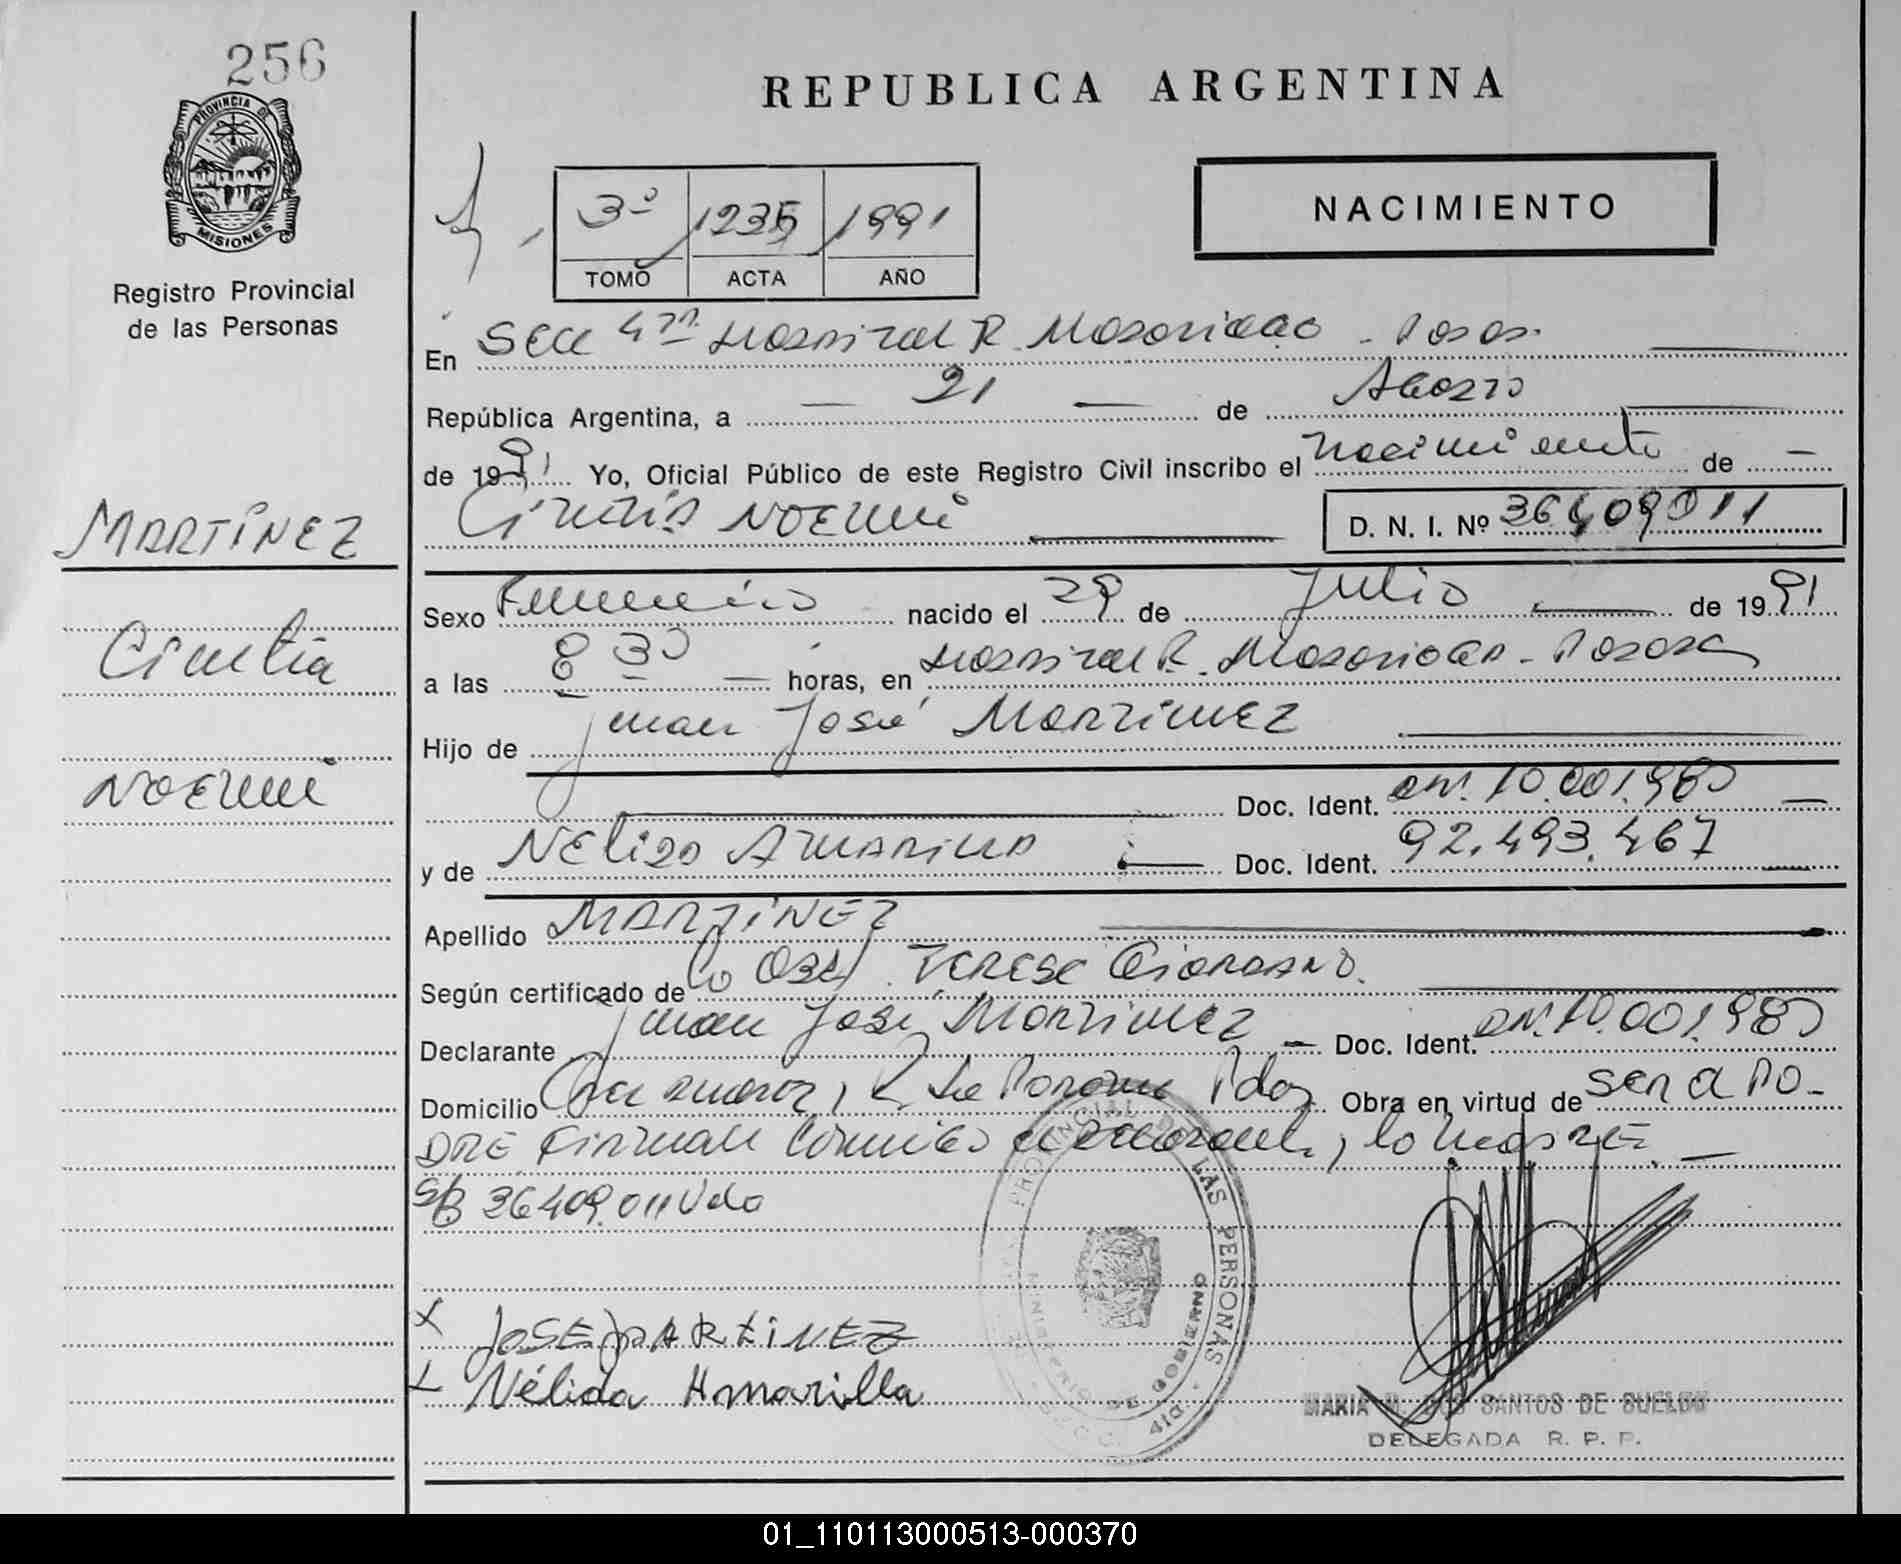 256
REPUBLICA ARGENTINA
PROVINCIA DE
MISIONES
Registro Provincial
de las Personas
3º 1235 1991
TOMO ACTA AÑO
NACIMIENTO
En Secc 4ta Hospital R. Madariaga - Posadas
República Argentina, a 21 de Agosto
de 1991 Yo, Oficial Público de este Registro Civil inscribo el nacimiento de
Cintia Noemi D. N. I. Nº 36409011
MARTÍNEZ
Cintia
Noemi
Sexo Femenino nacido el 29 de Julio de 1991
a las 8 30 horas, en Hospital R. Madariaga - Posadas
Hijo de Juan José Martinez
Doc. Ident. DNI. 10.001.980
y de Nelida Amarilla Doc. Ident. 92.493.467
Apellido MARTÍNEZ
Según certificado de la Obst. Terese Giordano.
Declarante Juan José Martinez Doc. Ident. DNI. 10.001.980
Domicilio Pdas Obra en virtud de ser el PA-
DRE Firman conmigo el declarante, la madre.
S/B 36.409.011 Vale
JOSE MARTINEZ
Nélida Amarilla
PROVINCIAL DE LAS PERSONAS
MINISTERIO DE GOBIERNO
MARIA D. DOS SANTOS DE SUELDO
DELEGADA R. P. P.
01_110113000513-000370